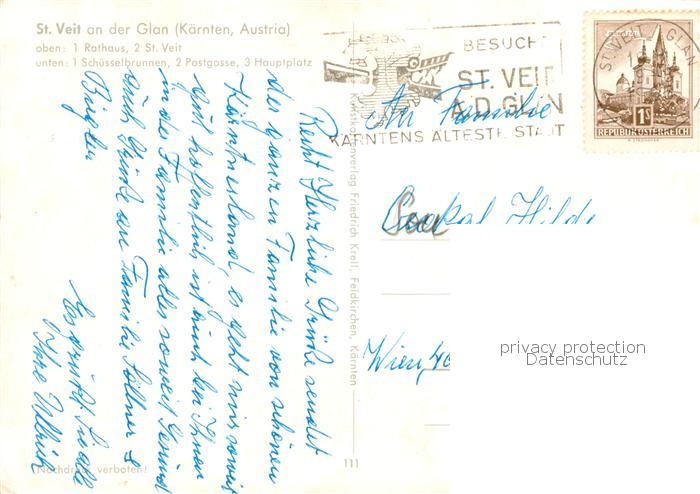 St. Veit an der Glan (Kärnten, Austria)
oben: 1 Rathaus, 2 St. Veit
unten: 1 Schüsselbrunnen, 2 Postgasse, 3 Hauptplatz
BESUCHT
ST. VEIT
A.D. GLAN
KÄRNTENS ÄLTESTE STADT
ST. VEIT GLAN
1S
REPUBLIK ÖSTERREICH
An Familie
Hilde
Wien, 40
privacy protection
Datenschutz
Recht Herzliche Grüße sendet
der ganzen Familie von schönen
Kärntnerland, es geht mir soweit
gut hoffentlich ist auch bei Ihnen
in der Familie alles soweit Gesund
auch Grüße an Familie Söllner &
Es grüßt Sie alle
Ihre
Kunstkartenverlag Friedrich Kroll, Feldkirchen, Kärnten
111
(Nachdruck verboten!